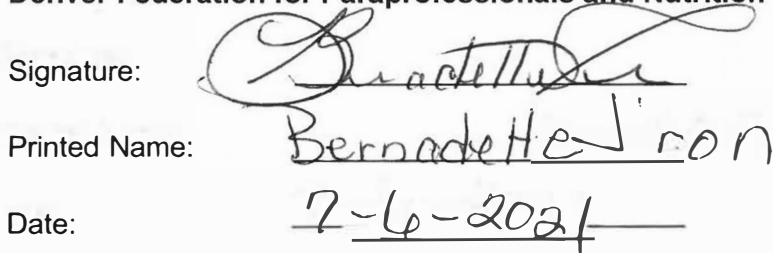 Denver Federation for Paraprofessionals and Nutrition
Signature: Bernadette
Printed Name: Bernadette
Date: 7-6-2021